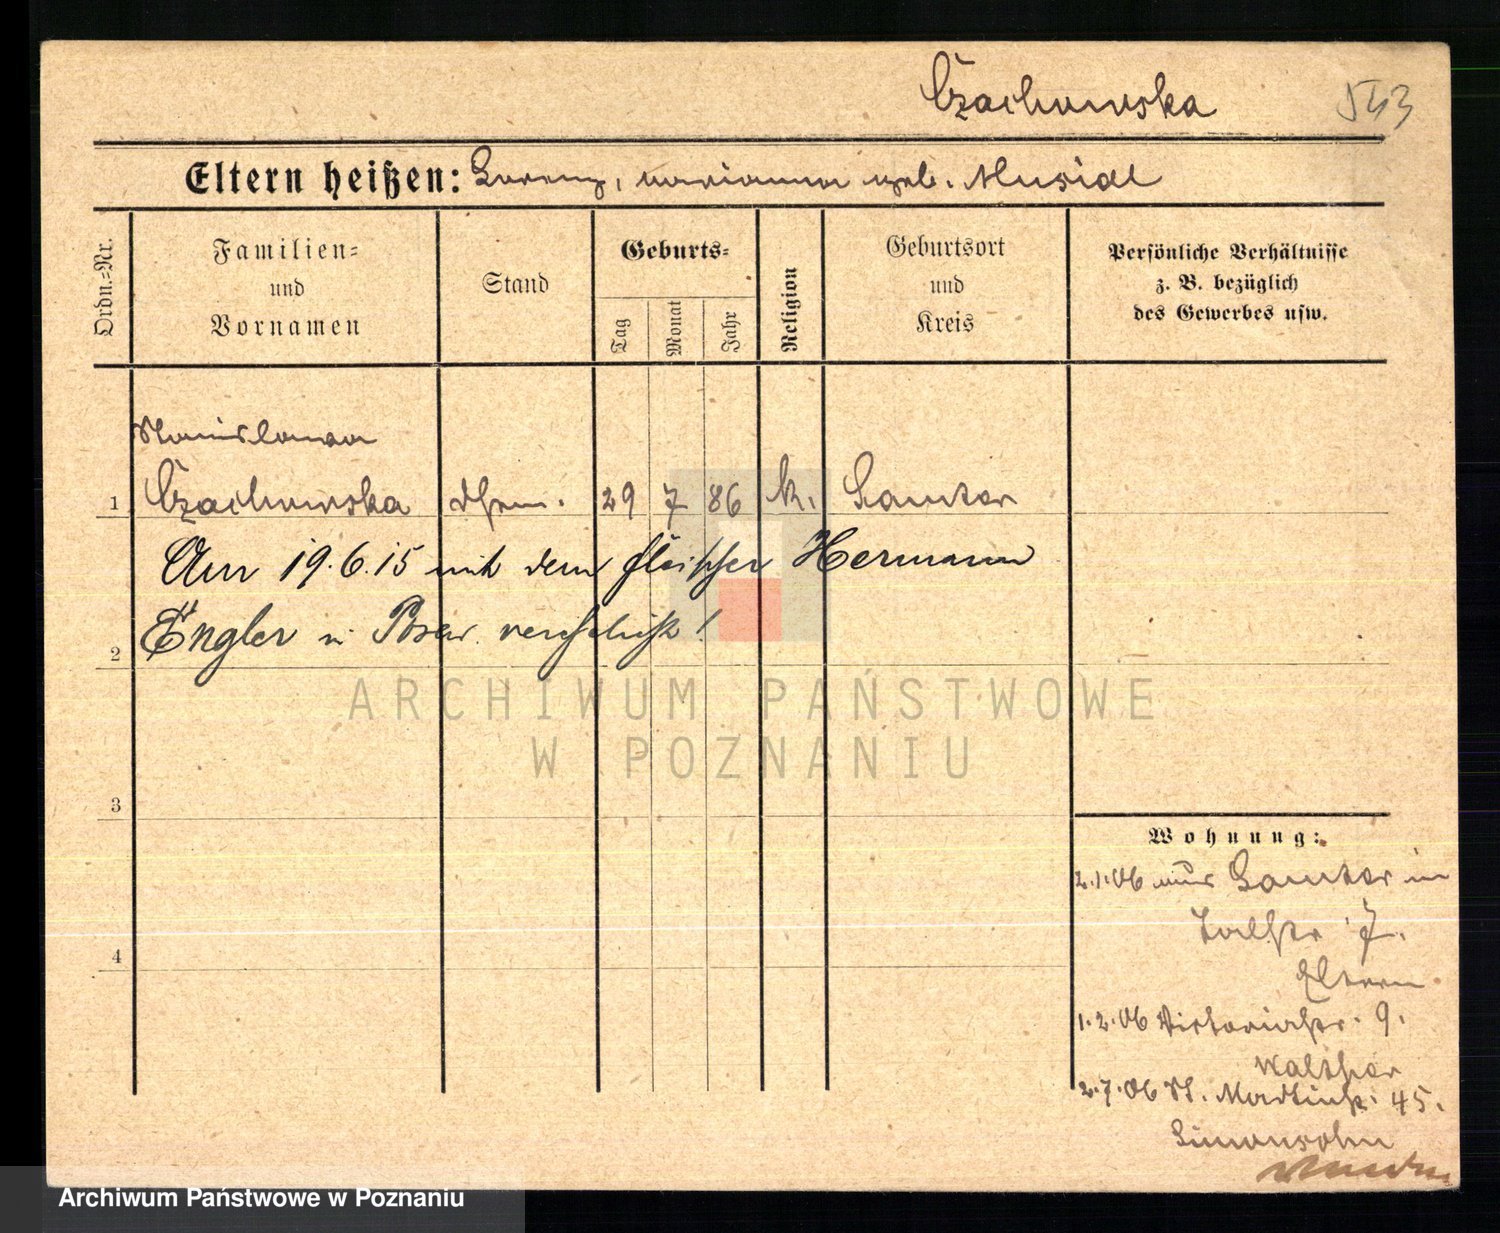 Czachowska 543
Eltern heißen: Lorenz, Marianna geb. Musial
Ordn.-Nr.
Familien-
und
Vornamen
Stand
Geburts-
Tag
Monat
Jahr
Religion
Geburtsort
und
Kreis
Persönliche Verhältnisse
z. B. bezüglich
des Gewerbes usw.
Stanislawa
1 Czachowska 29 7 86 k. Samter
Am 19.6.15 mit dem Fleischer Hermann
2 Engler in Posen verehelicht!
ARCHIWUM PAŃSTWOWE
W POZNANIU
3
4
Wohnung:
2.1.06 aus Samter in
7.
Eltern
1.2.06 Victoriastr. 9.
Walther
2.7.06 St. Martinstr. 45.
Simonsohn
Archiwum Państwowe w Poznaniu